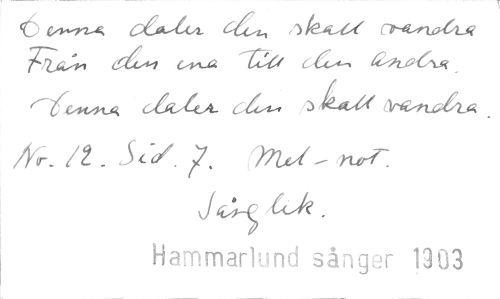 Denna daler den skall vandra
Från den ena till den andra.
Denna daler den skall vandra.
No. 12. Sid. 7. Mel-not.
Sånglek.
Hammarlund sånger 1903